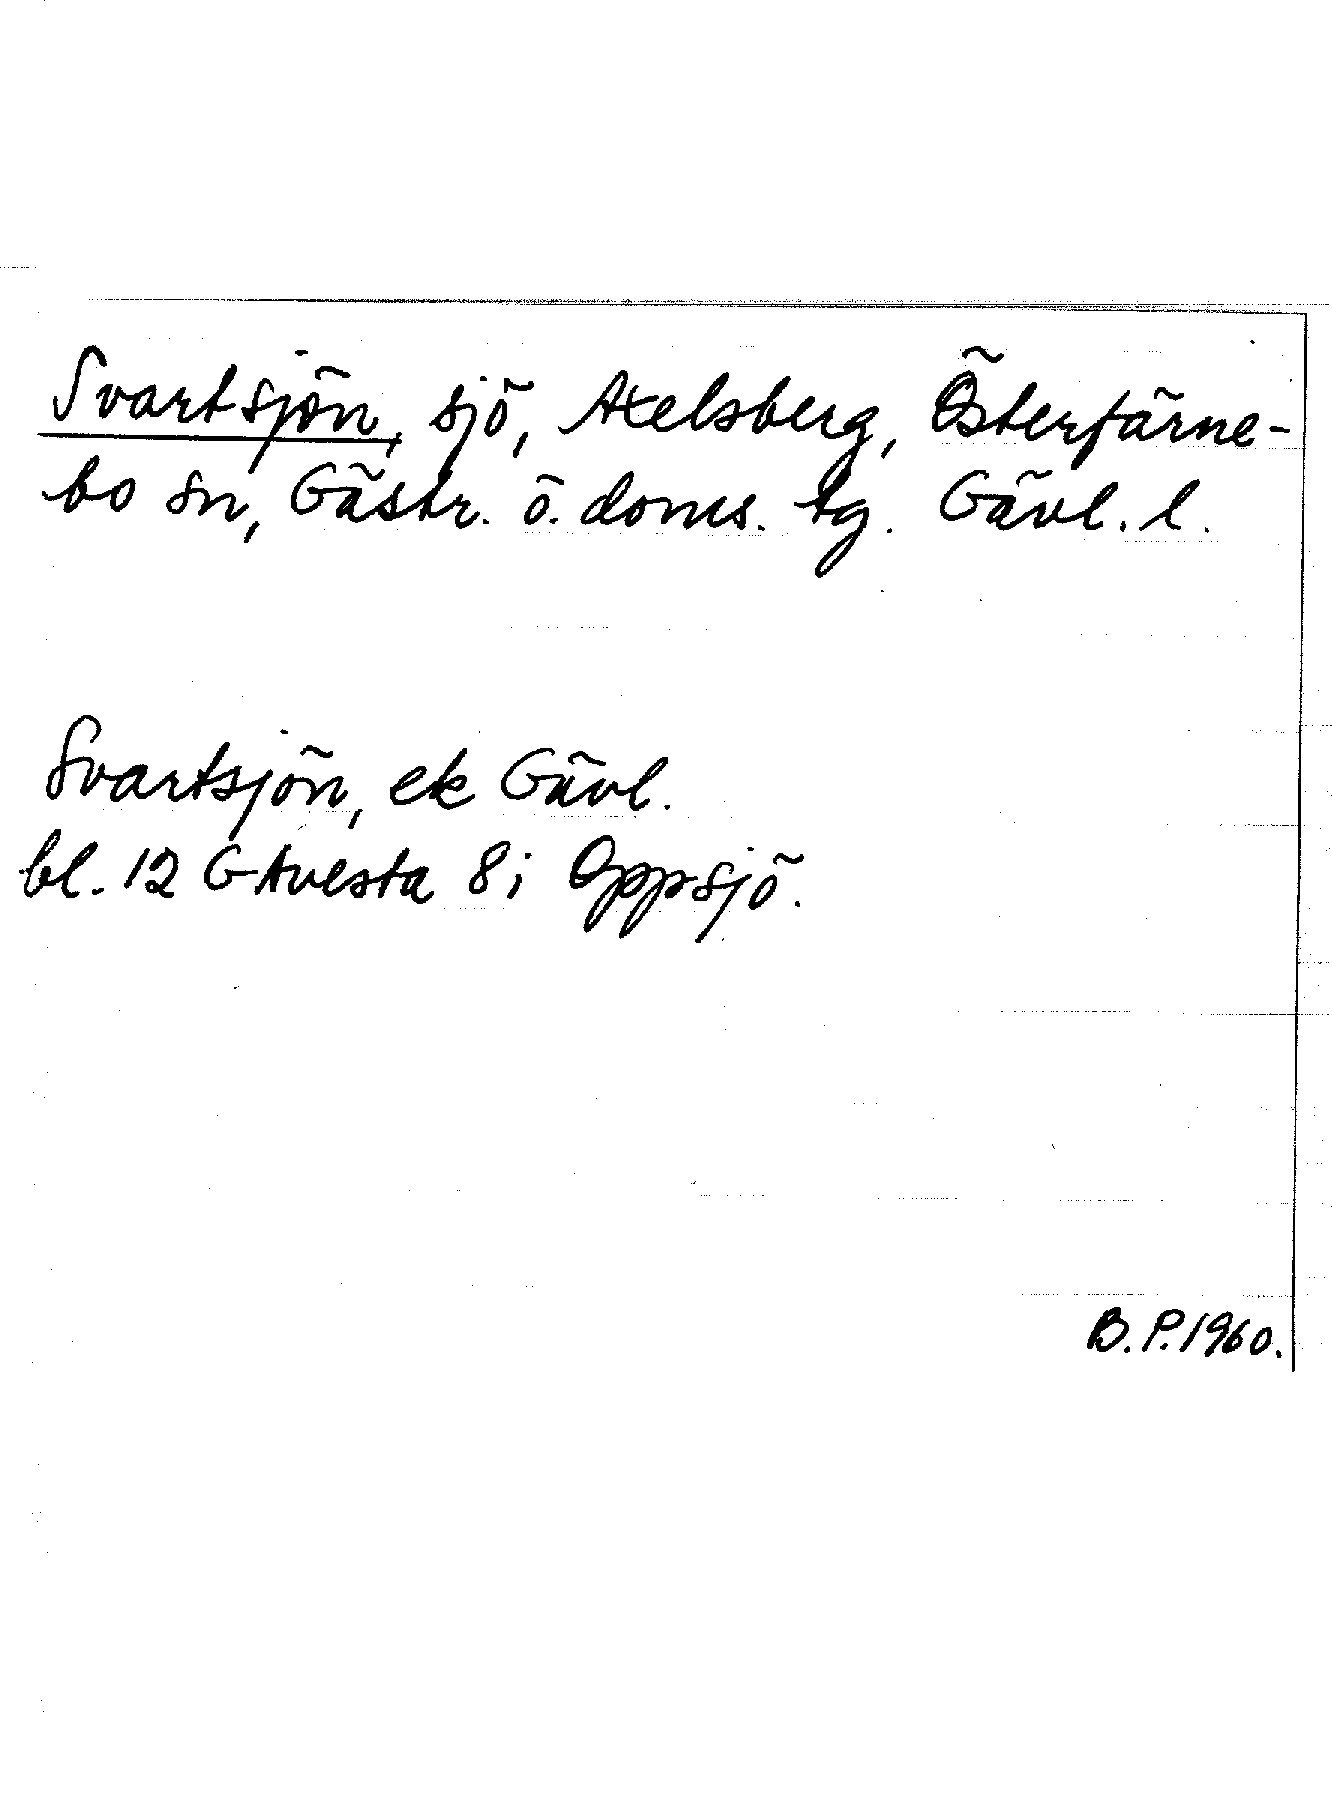 Svartsjön, sjö, Axelsberg, Österfärne-
bo sn, Gästr. ö. doms. tg. Gävl. l.
Svartsjön, ek Gävl.
bl. 12 G Avesta 8i Oppsjö.
B.P.1960.